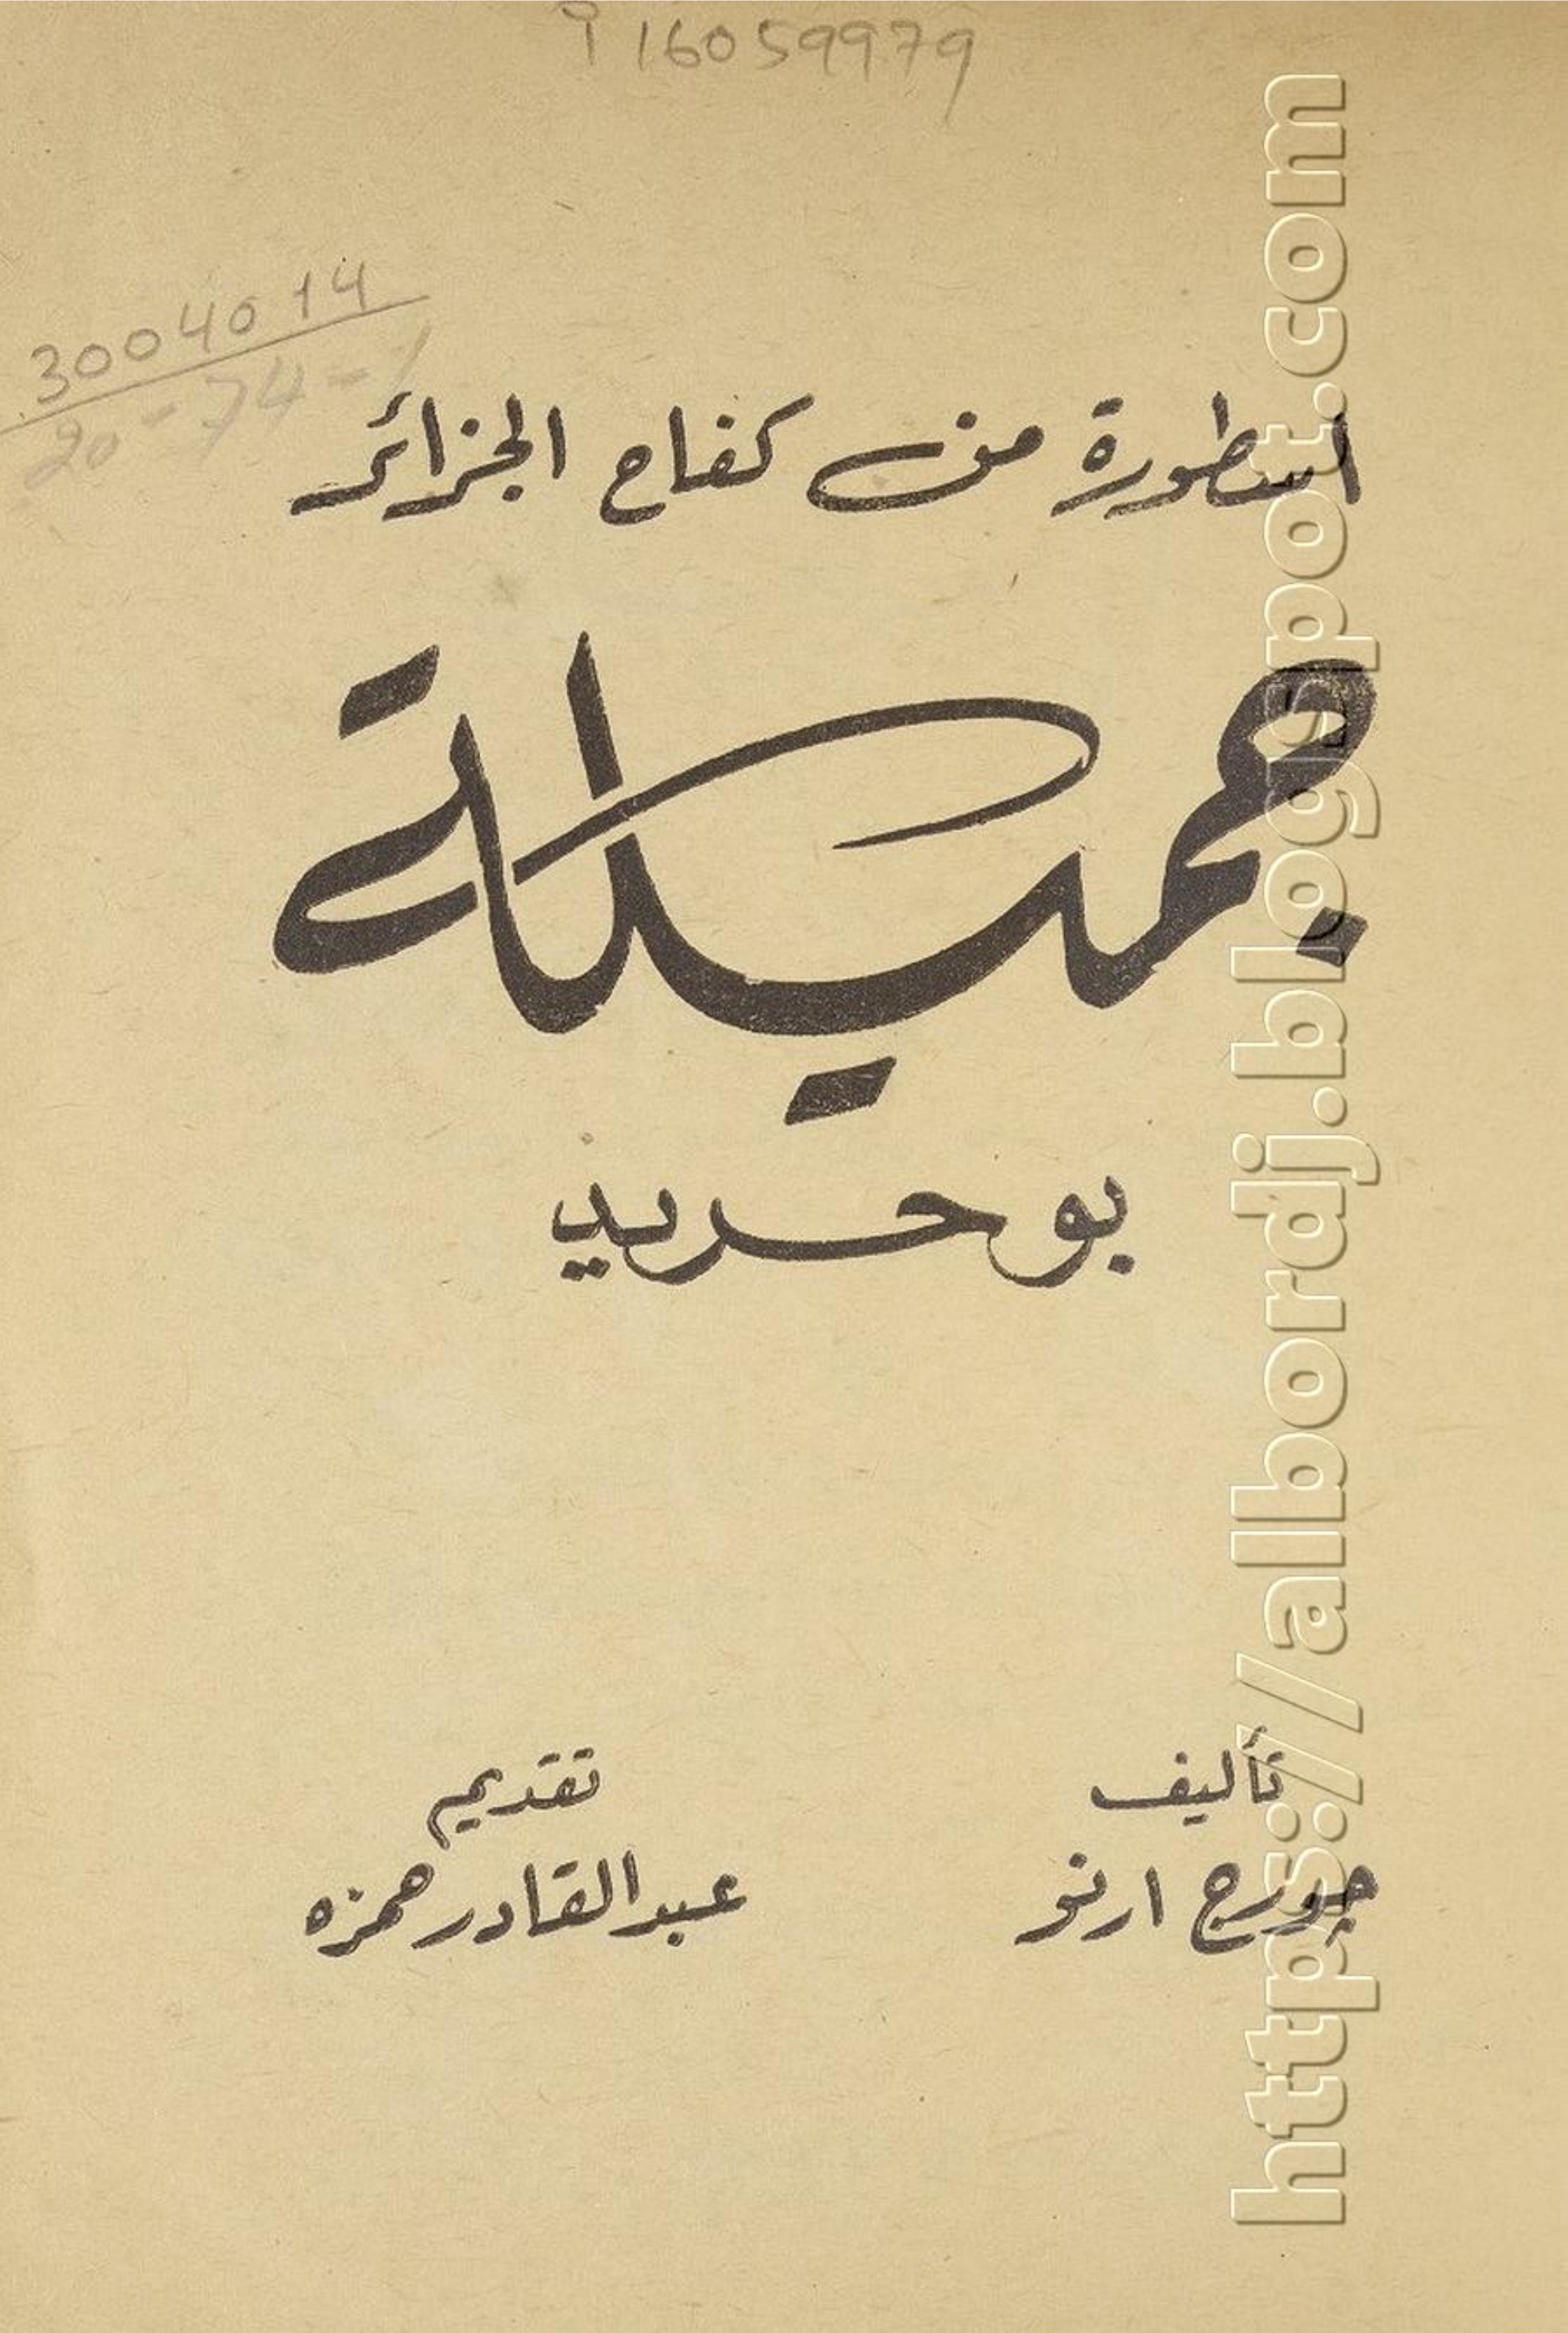 i 16059979
30040 14
20-74-1
اسطورة من كفاح الجزائر
جميلة
بو حريد
تأليف
جورج ارنو
تقديم
عبد القادر حمزه
https://albordj.blogspot.com